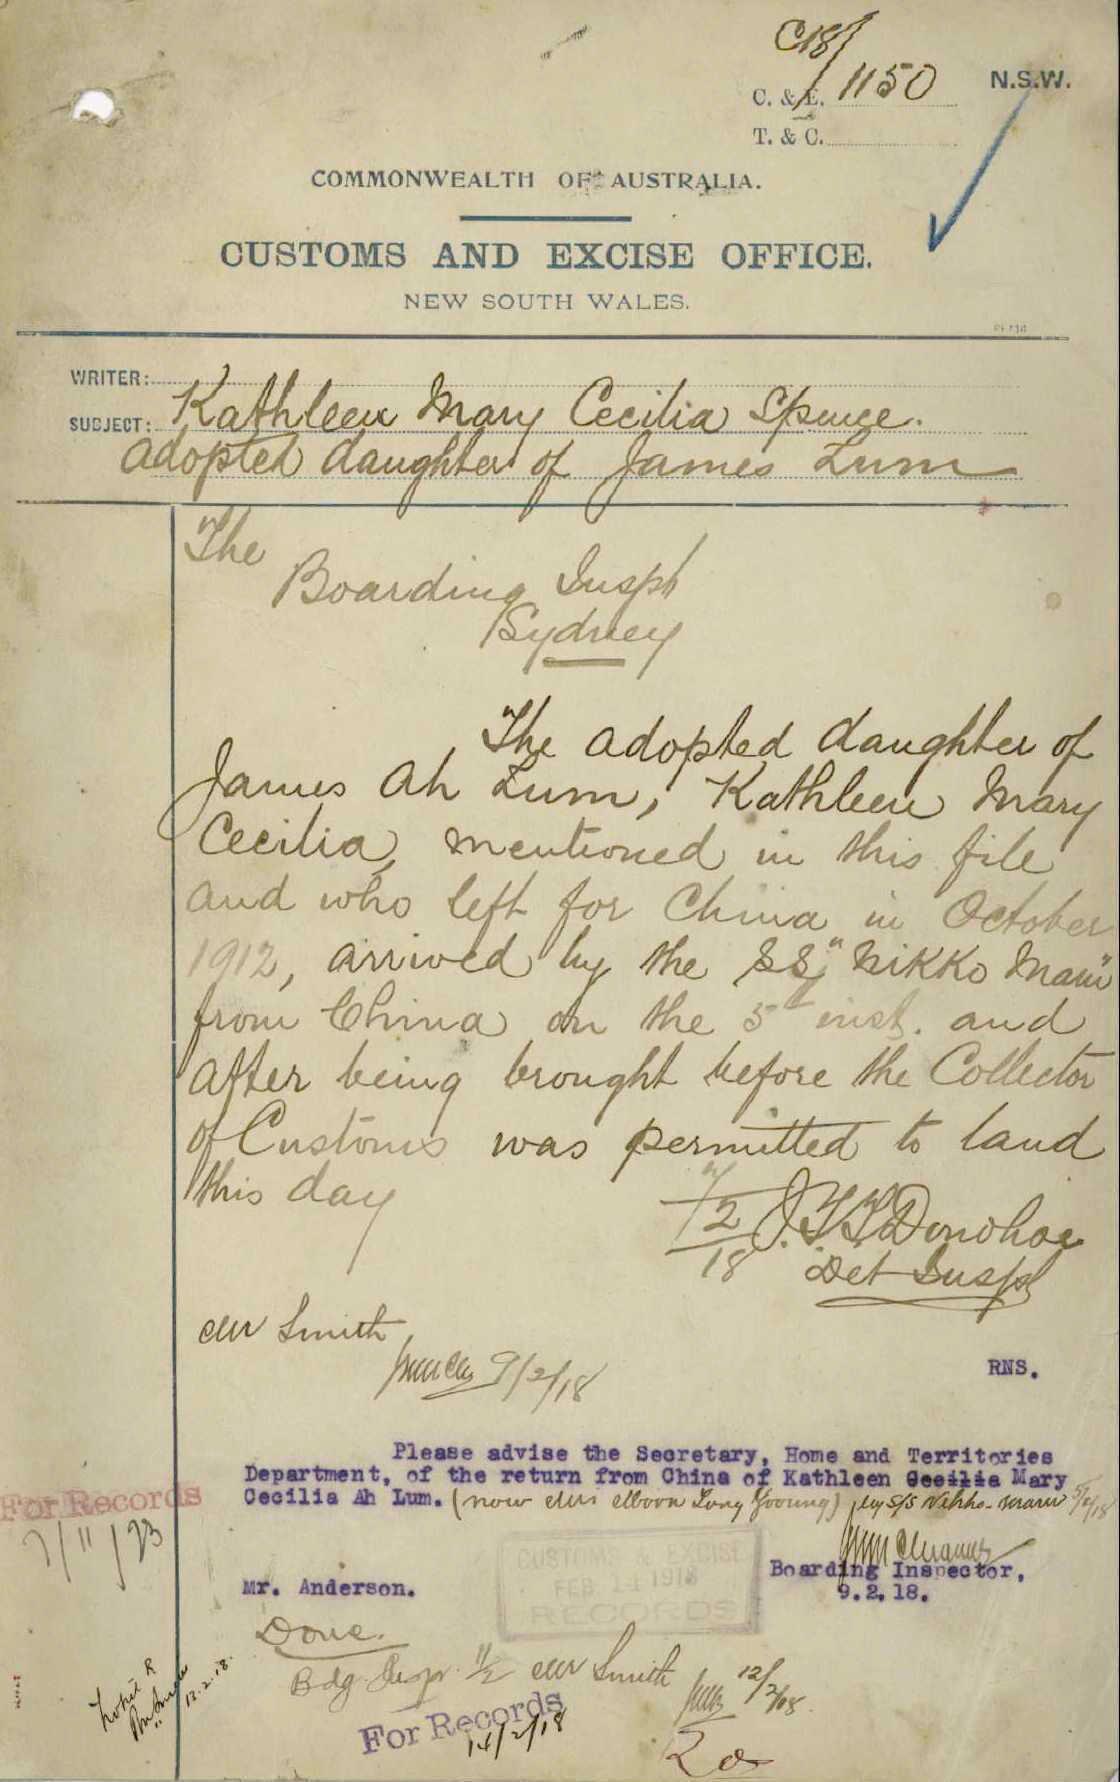 C18/1150
N.S.W.
C. & E.
T. & C.
COMMONWEALTH OF AUSTRALIA.
CUSTOMS AND EXCISE OFFICE.
NEW SOUTH WALES.
WRITER:
SUBJECT: Kathleen Mary Cecilia Spence.
adopted daughter of James Lum
The
Boarding Inspr
Sydney
The adopted daughter of
James Ah Lum, Kathleen Mary
Cecilia, mentioned in this file
and who left for China in October
1912, arrived by the SS "Nikko Maru"
from China on the 5th inst. and
after being brought before the Collector
of Customs was permitted to land
this day
7/2/18 J.T.T. Donohoe
Det Inspr
Mr Smith
9/2/18
RNS.
Please advise the Secretary, Home and Territories
Department, of the return from China of Kathleen Cecilia Mary
Cecilia Ah Lum. (now Mrs Yooung) by S/S Nikko-Maru 5/2/18
For Records
7/11/23
CUSTOMS & EXCISE
FEB 14 1918
RECORDS
Boarding Inspector,
9.2.18.
Mr. Anderson.
Done.
Bdg Inspr. 11/2 Mr Smith
12/2/18.
Noted R
12.2.18.
For Records
14/2/18